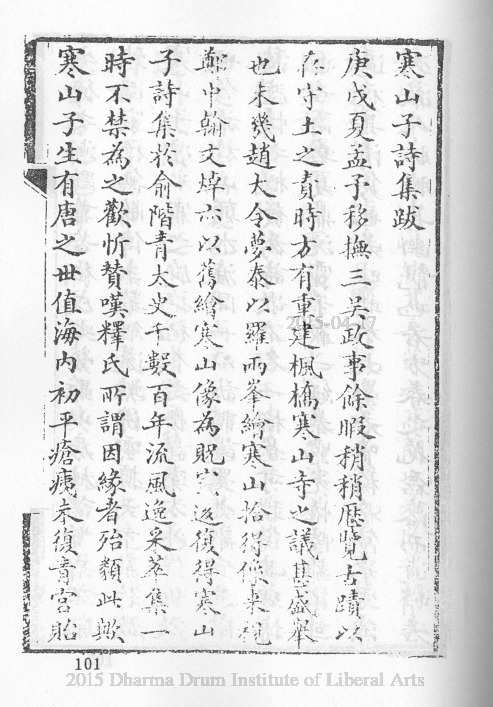 寒山子詩集跋
庚戌夏孟予移撫三吴政事餘暇稍稍歷覽古蹟以
存守土之責時方有重建楓橋寒山寺之議甚盛舉
也未幾趙大令夢泰以羅兩峯繪寒山拾得像来視
鄭中翰文焯亦以舊繪寒山像為貺宋返復得寒山
子詩集於俞階青太史千數百年流風逸采萃集一
時不禁為之歡忻贊嘆釋氏所謂因緣者殆類此歟
寒山子生有唐之世值海内初平瘡痍未復青宫貽
101
2015-04-17
2015 Dharma Drum Institute of Liberal Arts